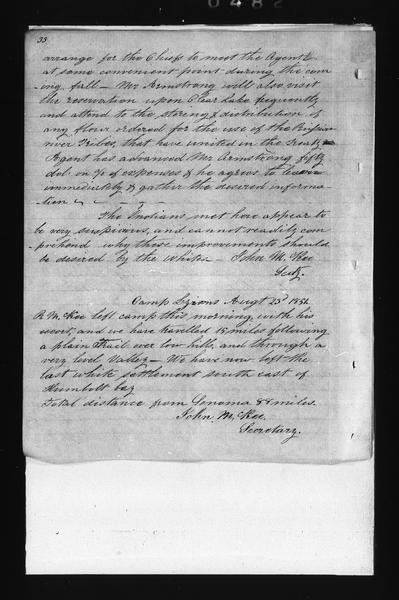 0482
33
arrange for the Chiefs to meet the Agent &
at some convenient point during the com
ing fall - Mr. Armstrong will also visit
the reservation upon Clear Lake frequently
and attend to the storing & distribution of
any flour ordered for the use of the Russian
river Tribes that have united in the Treaty
Agent has advanced Mr. Armstrong fifty
dol. on % of expenses & he agrees to leave
immediately & gather the desired informa
tion
The Indians met here appear to
be very suspicious, and cannot readily com
prehend why those improvements should
be desired by the Whites - John M. Kee
Secty.
Camp Augt 23d 1851
R. M. Kee left camp this morning with his
escort, and we have travelled 15 miles following
a plain Trail over low hills, and through a
very level Valley - We have now left the
last white settlement south east of
Humbolt bay
Total distance from Sonoma 88 miles.
John M. Kee
Secretary.